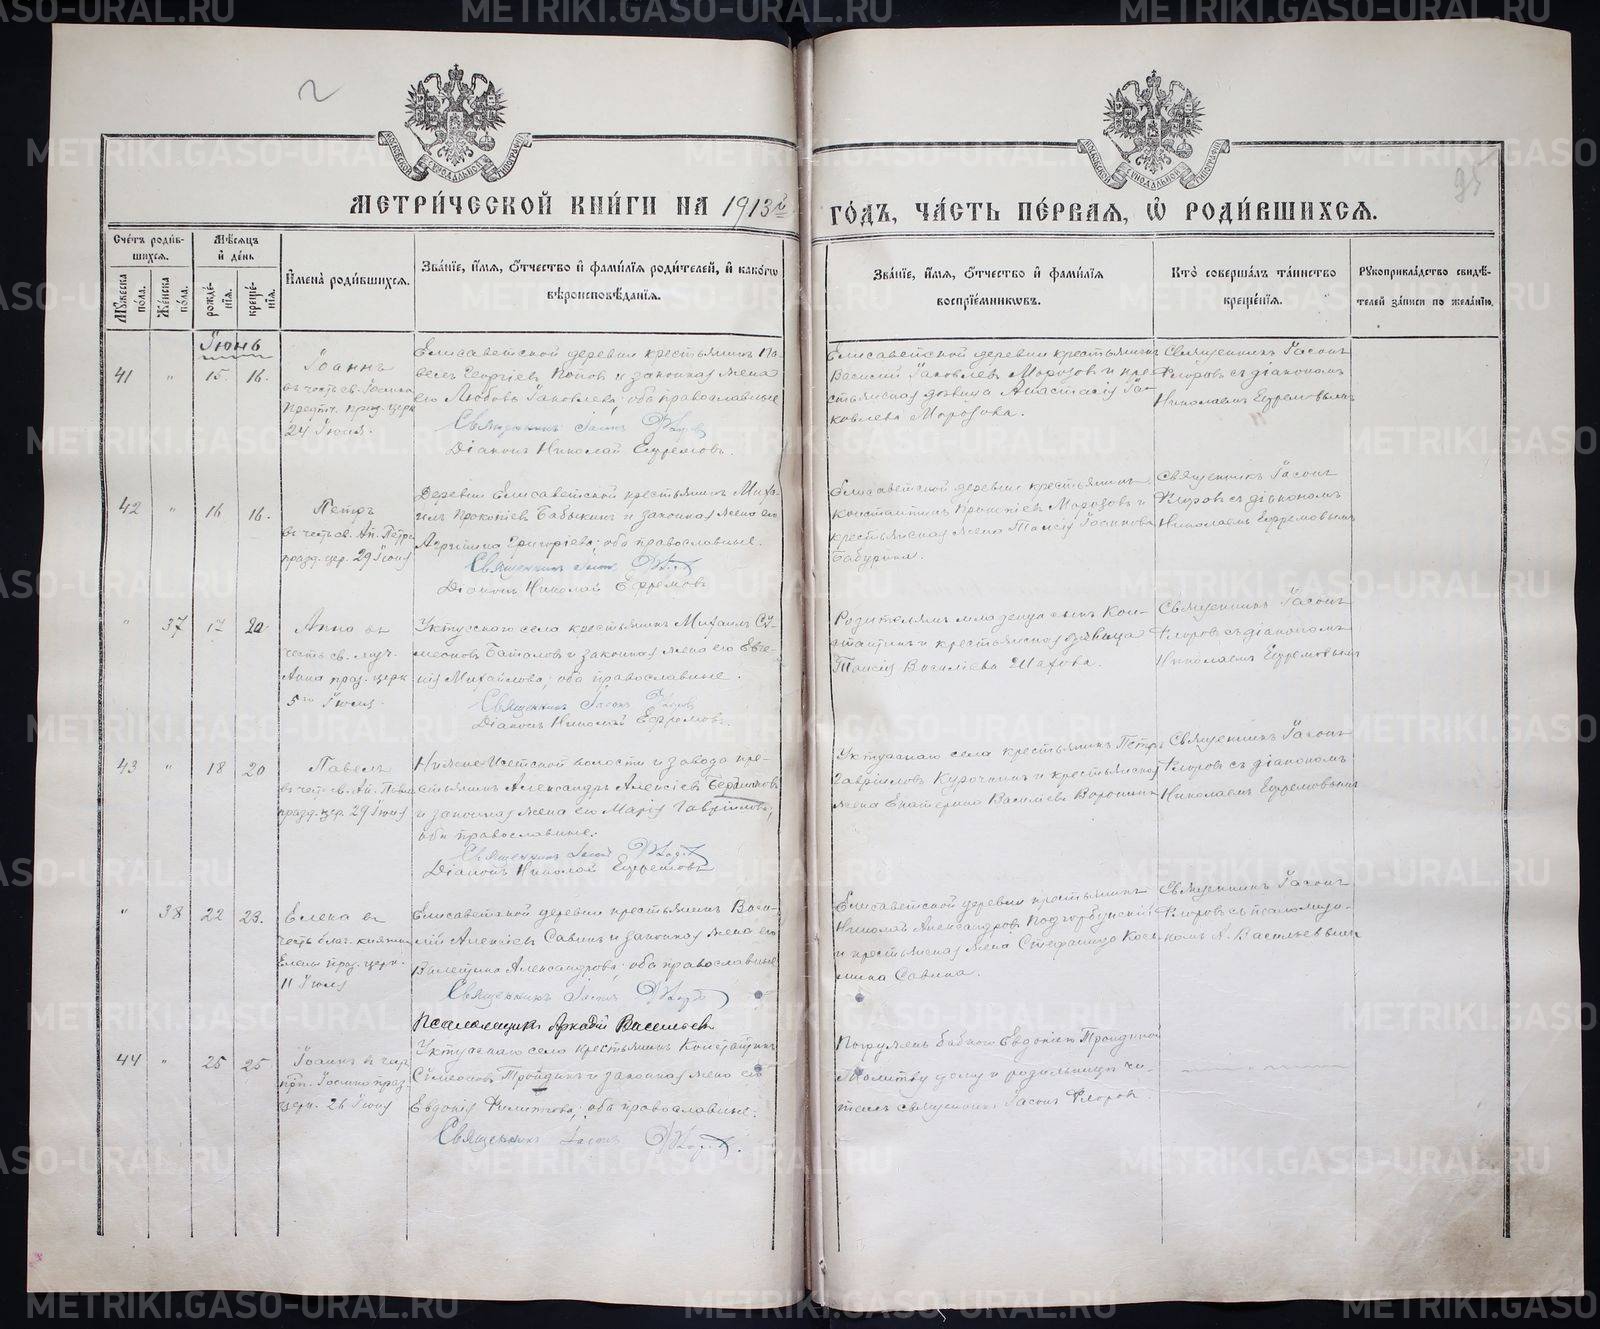 МЕТРИ́ЧЕСКОЙ КНИ́ГИ НА 1913й ГО́ДЪ, ЧА́СТЬ ПЕ́РВАЯ, Ѡ РОДИ́ВШИХСЯ.
95
Сче́тъ роди́вшихся.
Му́жеска по́ла.
Же́нска по́ла.
Мѣ́сяцъ и҆ де́нь
рожде́нїѧ.
креще́нїѧ.
И҆мена̀ роди́вшихсѧ.
Зва́нїе, и҆́мѧ, ѻ҆́тчество и҆ фами́лїѧ роди́телей, и҆ како́гѡ вѣроисповѣ́данїѧ.
Зва́нїе, и҆́мѧ, ѻ҆́тчество и҆ фами́лїѧ воспрїе́мникѡвъ.
Кто̀ соверша́лъ та́инство креще́нїѧ.
Рꙋкоприкла́дство свидѣ́телей за́писи по жела́нїю.
Іюнь
41 " 15. 16.
Іоаннъ
въ честь св. Іоанна
Предтч. празд. церк
24 Іюня.
Елисаветской деревни крестьянинъ Па-
велъ Георгіевъ Поповъ и законная жена
его Любовь Іаковлева; оба православные
Священникъ Іасонъ Флоровъ
Діаконъ Николай Ефремовъ.
Елисаветской деревни крестьянинъ
Василій Іаковлевъ Морозовъ и кре-
стьянская дѣвица Анастасія Іа-
ковлева Морозова.
Священникъ Іасонъ
Флоровъ съ діакономъ
Николаемъ Ефремовымъ
42 " 16 16.
Петръ
въ честь св. Ап. Петра
празд. цер. 29 Іюня
Деревни Елисаветской крестьянинъ Миха-
илъ Прокопіевъ Бабыкинъ и законная жена его
Агриппина Григоріева; оба православные.
Священникъ Іасонъ Флоровъ
Діаконъ Николай Ефремовъ
Елисаветской деревни крестьянинъ
Константинъ Прокопіевъ Морозовъ и
крестьянская жена Таисія Іоаннова
Бабурина.
Священникъ Іасонъ
Флоровъ съ діакономъ
Николаемъ Ефремовымъ
" 37 17 20
Анна въ
честь св. муч.
Анна праз. церк
5го Іюля.
Уктусскаго села крестьянинъ Михаилъ Су-
меоновъ Баталовъ и законная жена его Евге-
нія Михайлова; оба православные.
Священникъ Іасонъ Флоровъ
Діаконъ Николай Ефремовъ.
Родителямъ младенца сынъ Кон-
стантинъ и крестьянская дѣвица
Таисія Василіева Шахова.
Священникъ Іасонъ
Флоровъ съ діакономъ
Николаемъ Ефремовымъ
43 " 18 20
Павелъ
въ чест. св. Ап. Павла
празд. цер. 29 Іюня
Нижне-Исетской волости и завода кре-
стьянинъ Александръ Алексіевъ
и законная жена его Марія Гавріилова;
оба православные.
Священникъ Іасонъ Флоровъ
Діаконъ Николай Ефремовъ
Уктусскаго села крестьянинъ Петръ
Гавріиловъ Курочкинъ и крестьянская
жена Екатерина Василіева Воронина
Священникъ Іасонъ
Флоровъ съ діакономъ
Николаемъ Ефремовымъ
" 38 22 23.
Елена въ
честь благ. княгини
Елены праз. церк.
11 Іюля
Елисаветской деревни крестьянинъ Васи-
лій Алексіевъ Савинъ и законная жена его
Валентина Александрова; оба православные
Священникъ Іасонъ Флоровъ
Псаломщикъ Аркадій Васильевъ
Елисаветской деревни крестьянинъ
Николай Александровъ Подгорбунскій
и крестьянская жена Стефанида Кось-
мина Савина.
Священникъ Іасонъ
Флоровъ съ псаломщи-
комъ А. Васильевымъ
44 " 25 25
Іоаннъ въ чест.
прп. Іоанна праз.
церк. 26 Іюня
Уктусскаго села крестьянинъ Константинъ
Сѵмеоновъ Тройдинъ и законная жена его
Евдокія Филиппова; оба православные.
Священникъ Іасонъ Флоровъ.
Погруженъ бабкою Евдокіею Тройдиной
Молитву дому и родильницѣ чи-
талъ священникъ Іасонъ Флоровъ.
METRIKI.GASO-URAL.RU